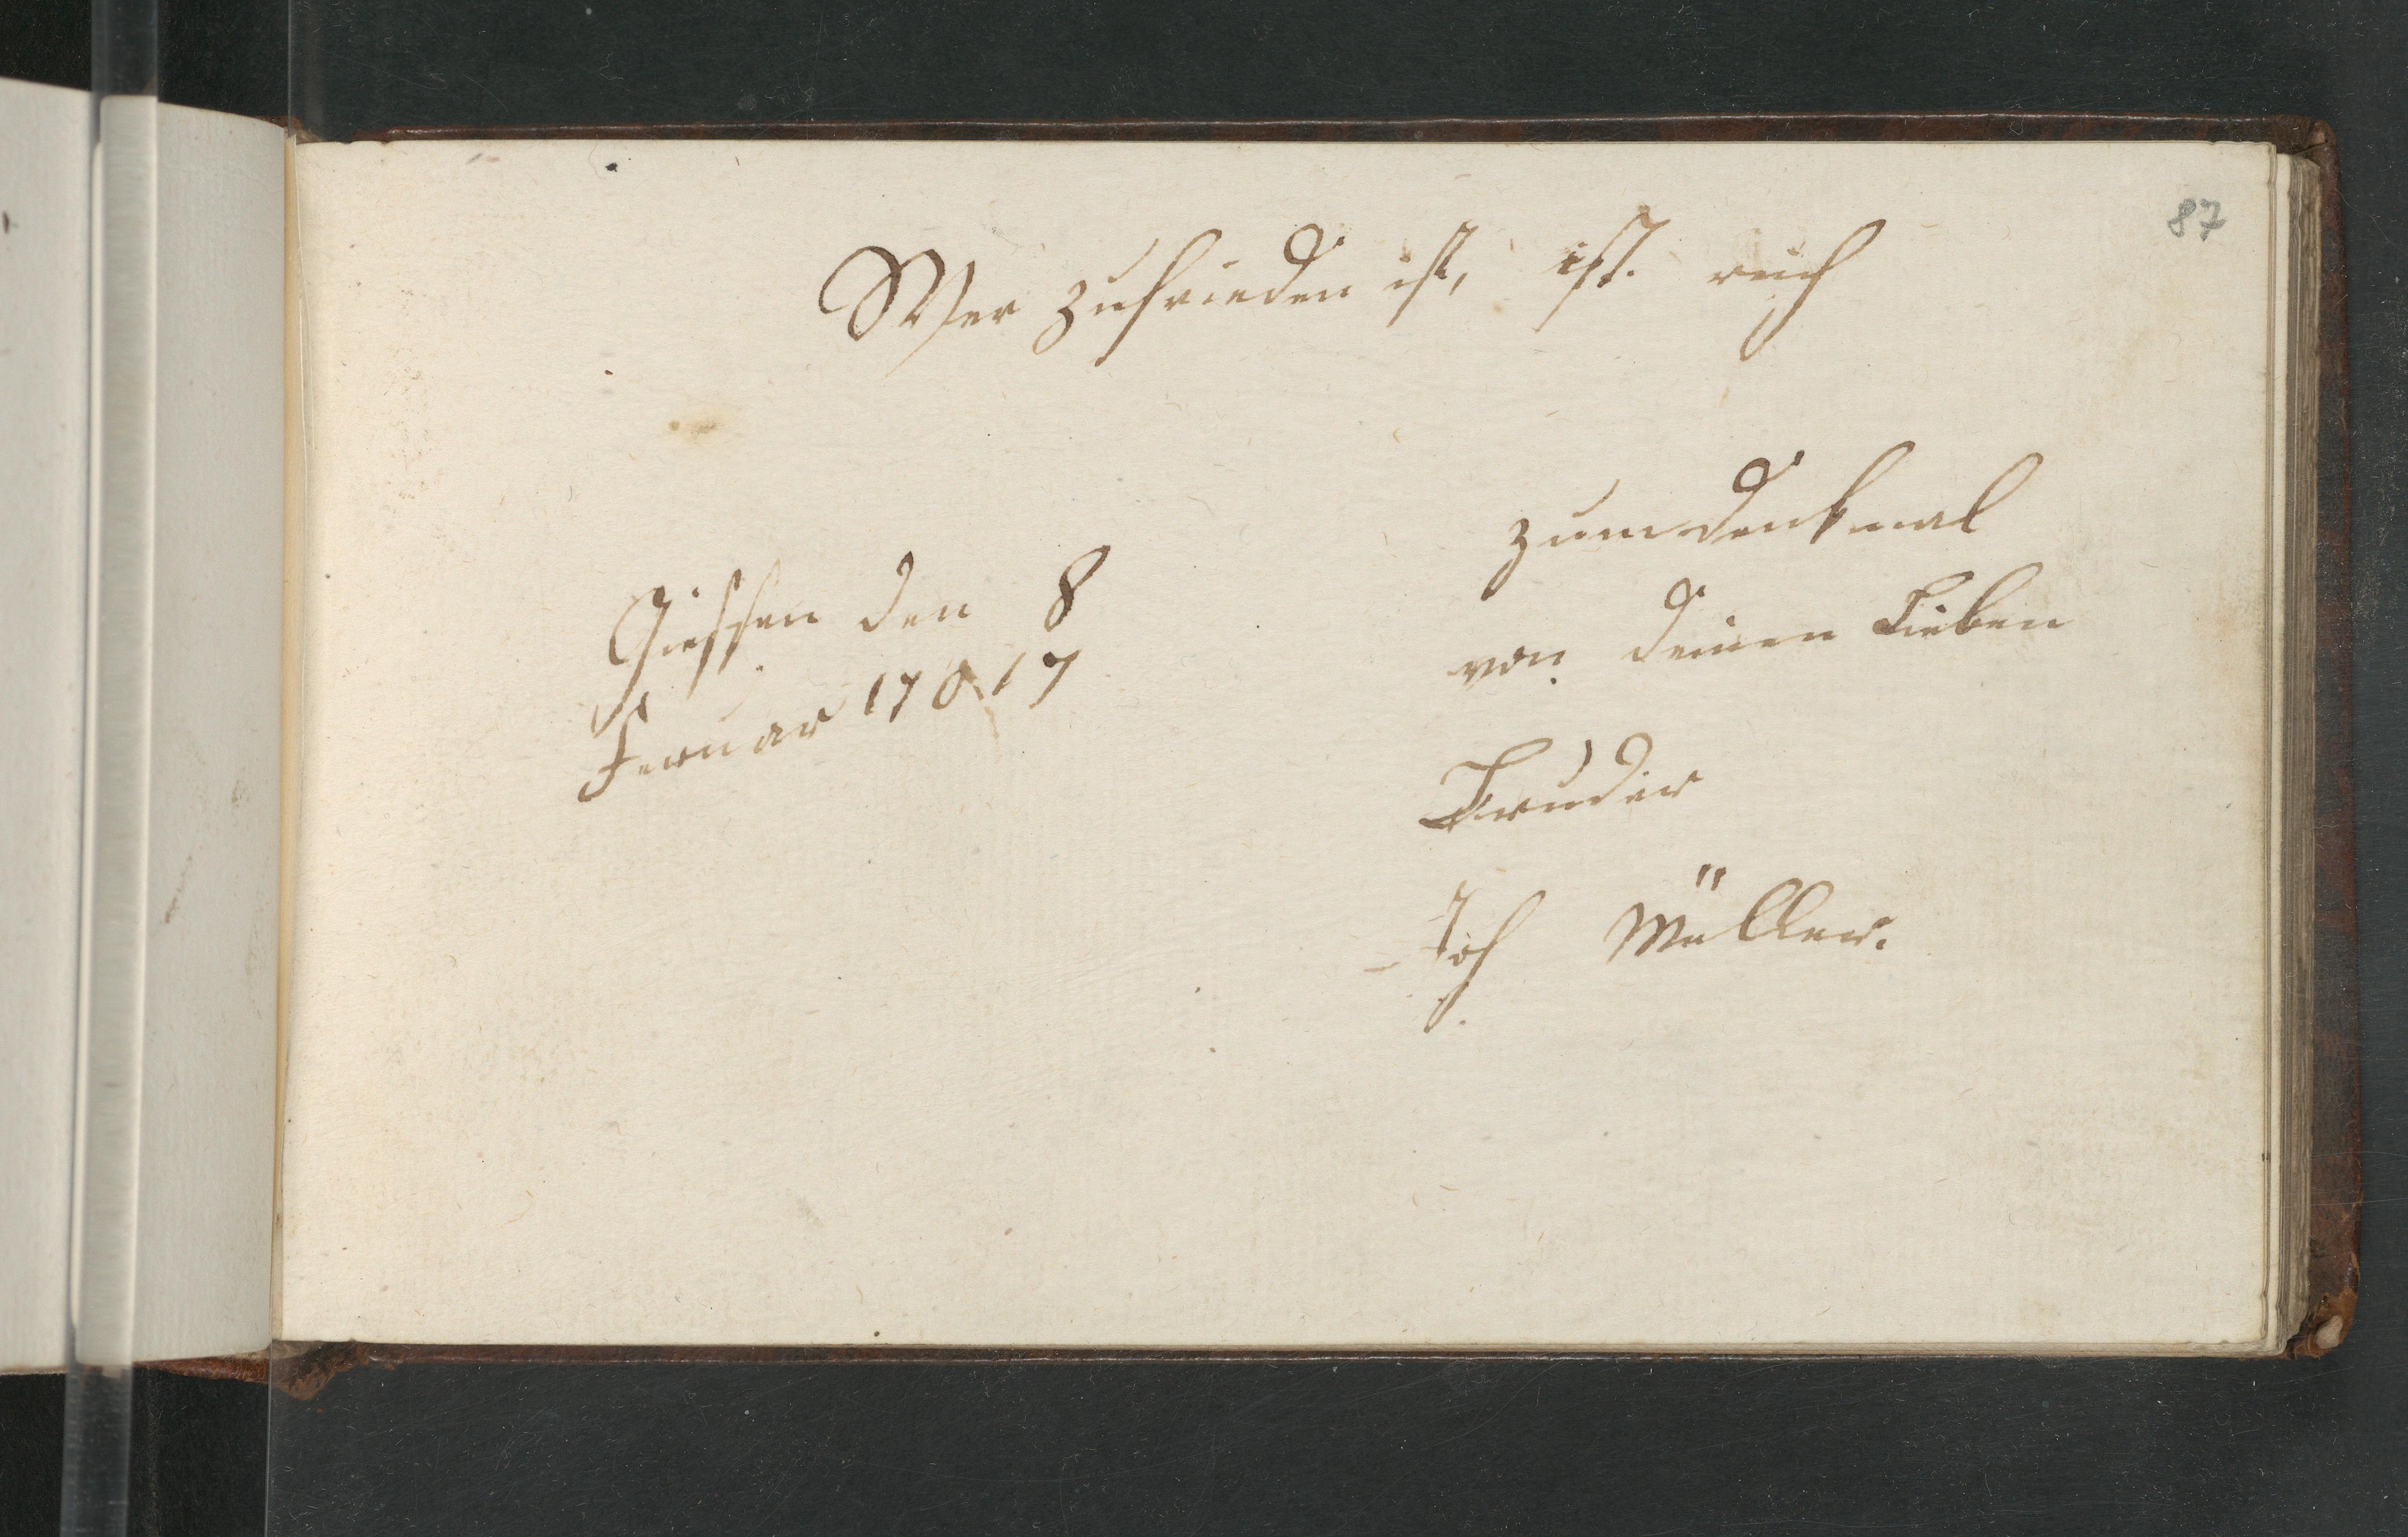 87
Wer zufrieden ist, ist. reich
Giessen den 8
Feruar 17
zum denkmal
von deinen Lieben
Bruder
Joh Müller.